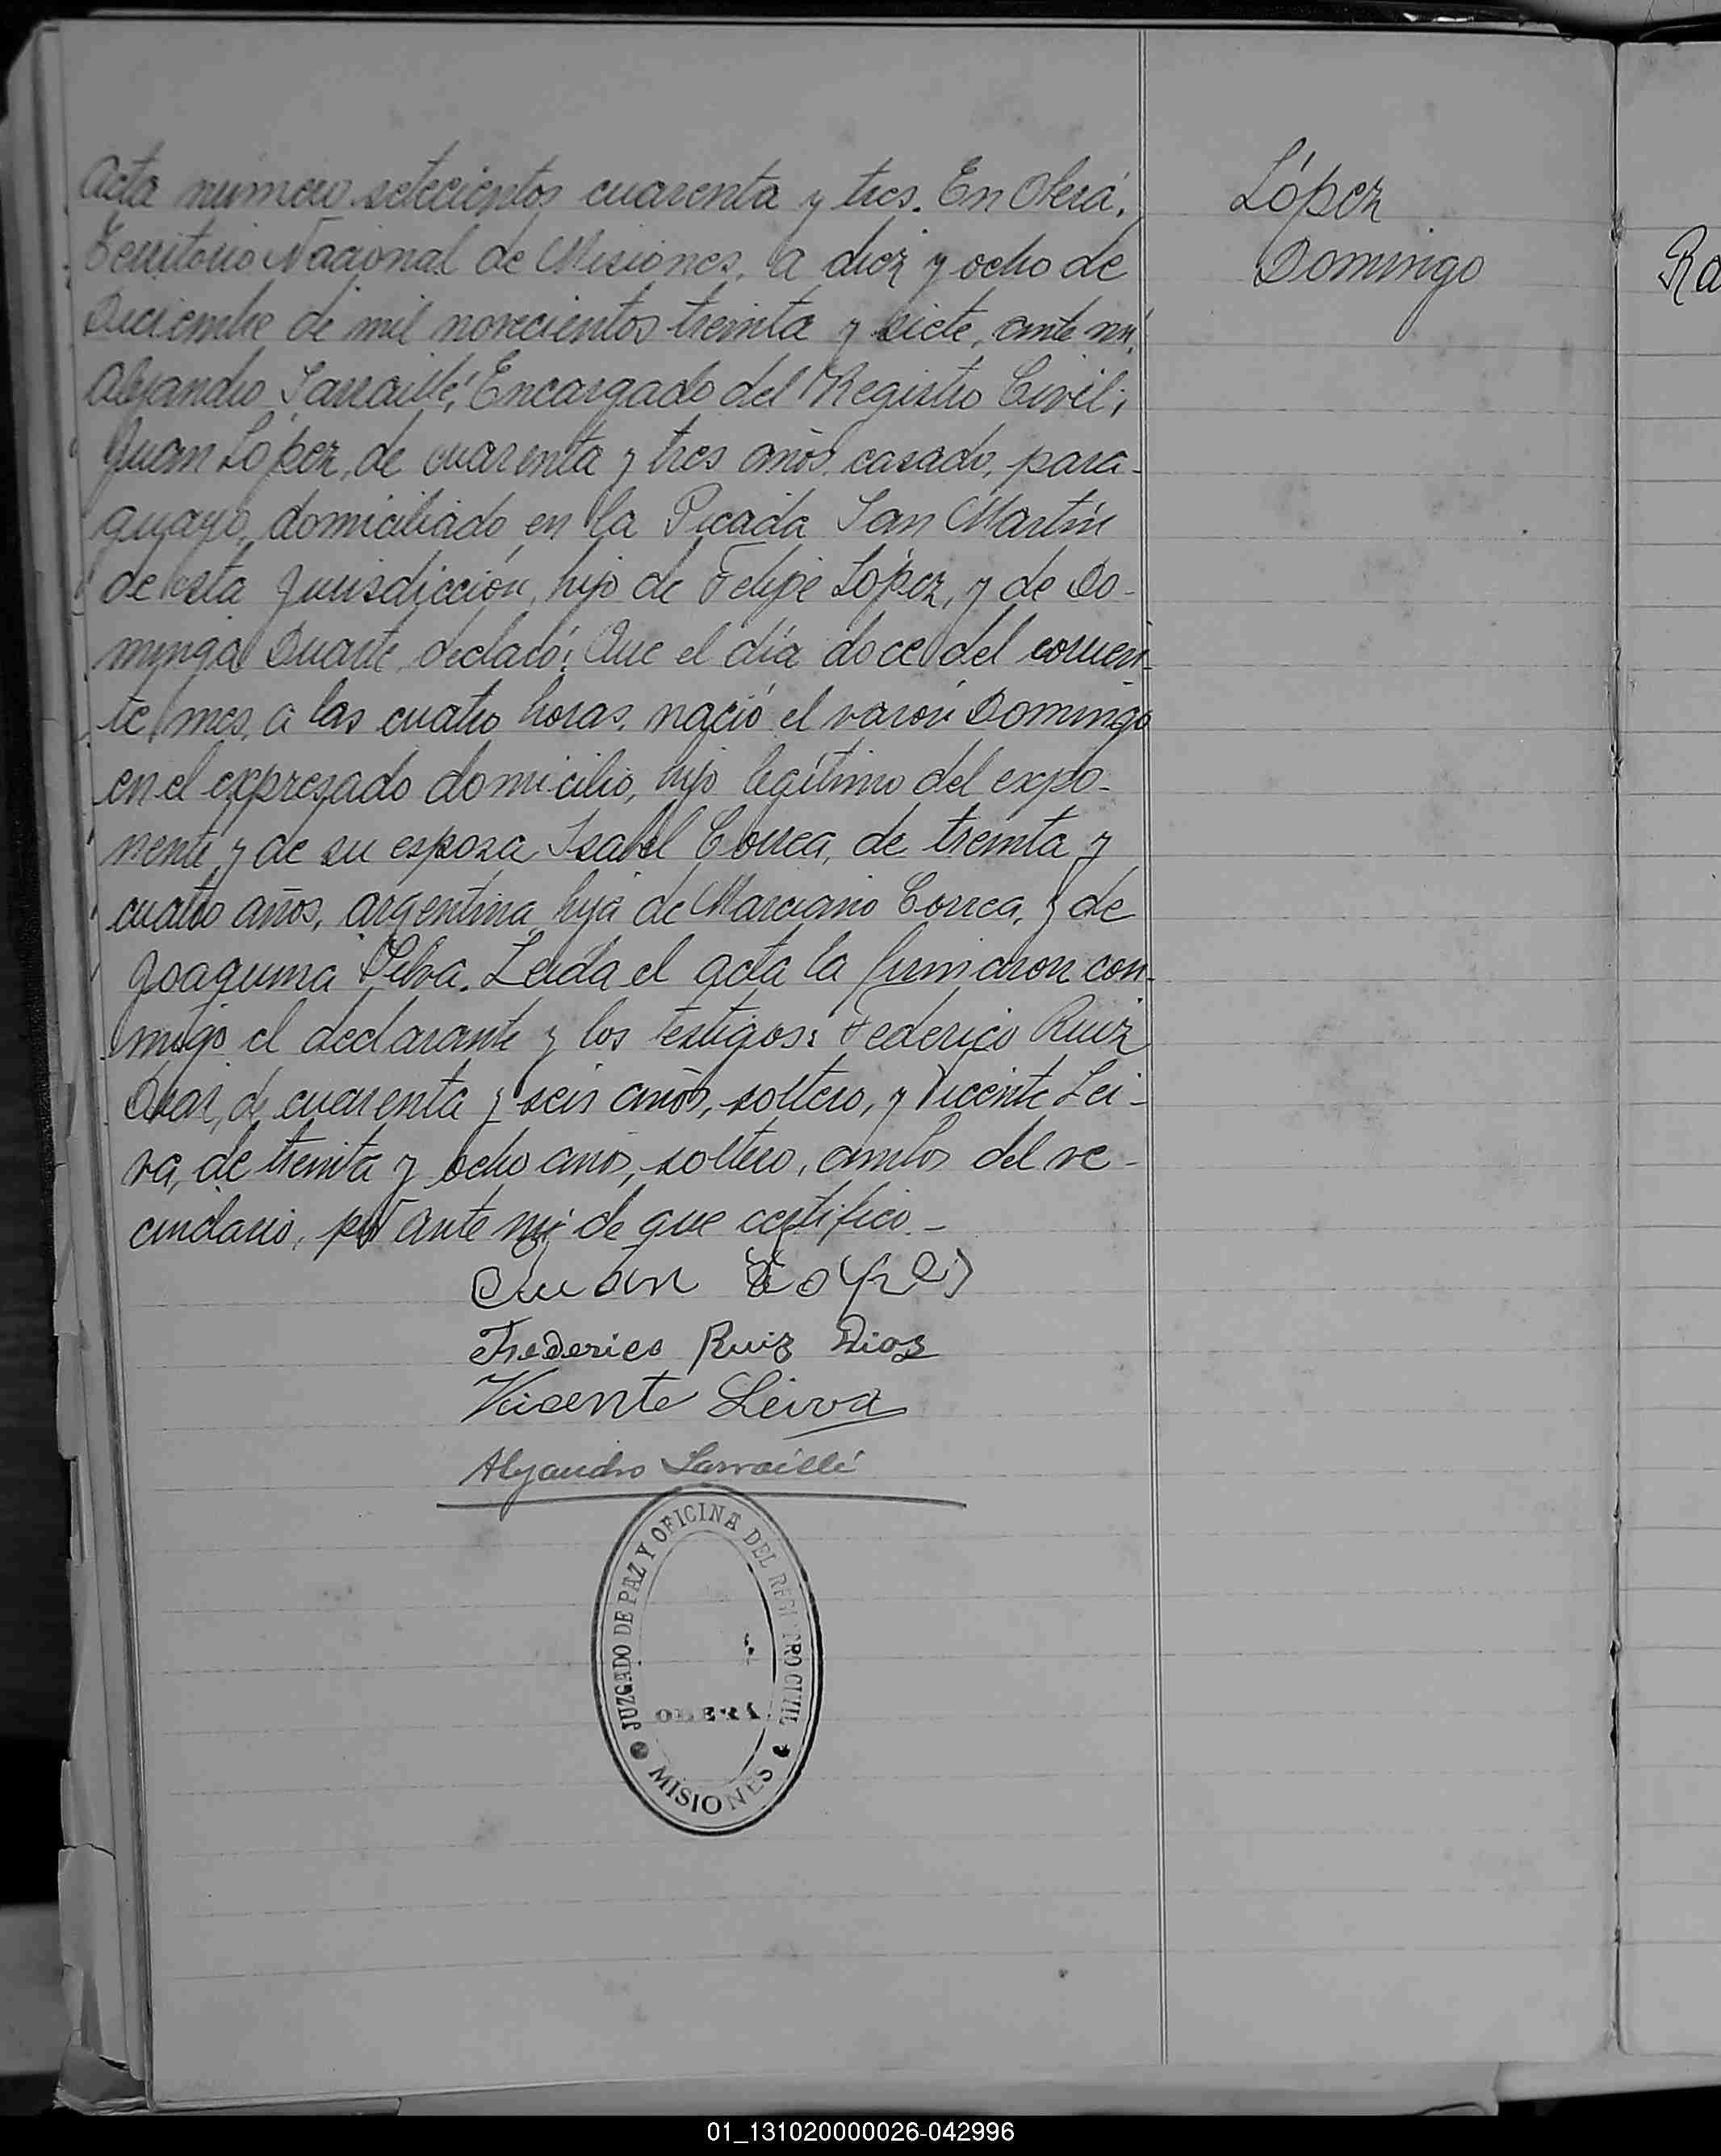 Acta número setecientos cuarenta y tres. En Oberá,
Territorio Nacional de Misiones, a diez y ocho de
Diciembre de mil novecientos treinta y siete, ante mí,
Alejandro Sarraillé, Encargado del Registro Civil;
Juan López, de cuarenta y tres años, casado, para-
guayo, domiciliado en la Picada San Martín
de esta Jurisdicción, hijo de Felipe López, y de Do-
minga Duarte, declaró: Que el día doce del corrien-
te mes, a las cuatro horas, nació el varón Domingo
en el expresado domicilio, hijo legítimo del expo-
nente y de su esposa Isabel Correa, de treinta y
cuatro años, argentina, hija de Marciano Correa, y de
Joaquina Silva. Leída el acta la firmaron con-
migo el declarante y los testigos: Federico Ruiz
Diaz, de cuarenta y seis años, soltero, y Vicente Lei-
va, de treinta y ocho años, soltero, ambos del ve-
cindario, por ante mí de que certifico.-
Juan López
Federico Ruiz Dios
Vicente Leiva
Alejandro Sarraillé
JUZGADO DE PAZ Y OFICINA DEL REGISTRO CIVIL
OBERÁ
MISIONES
López
Domingo
Ra
01_131020000026-042996